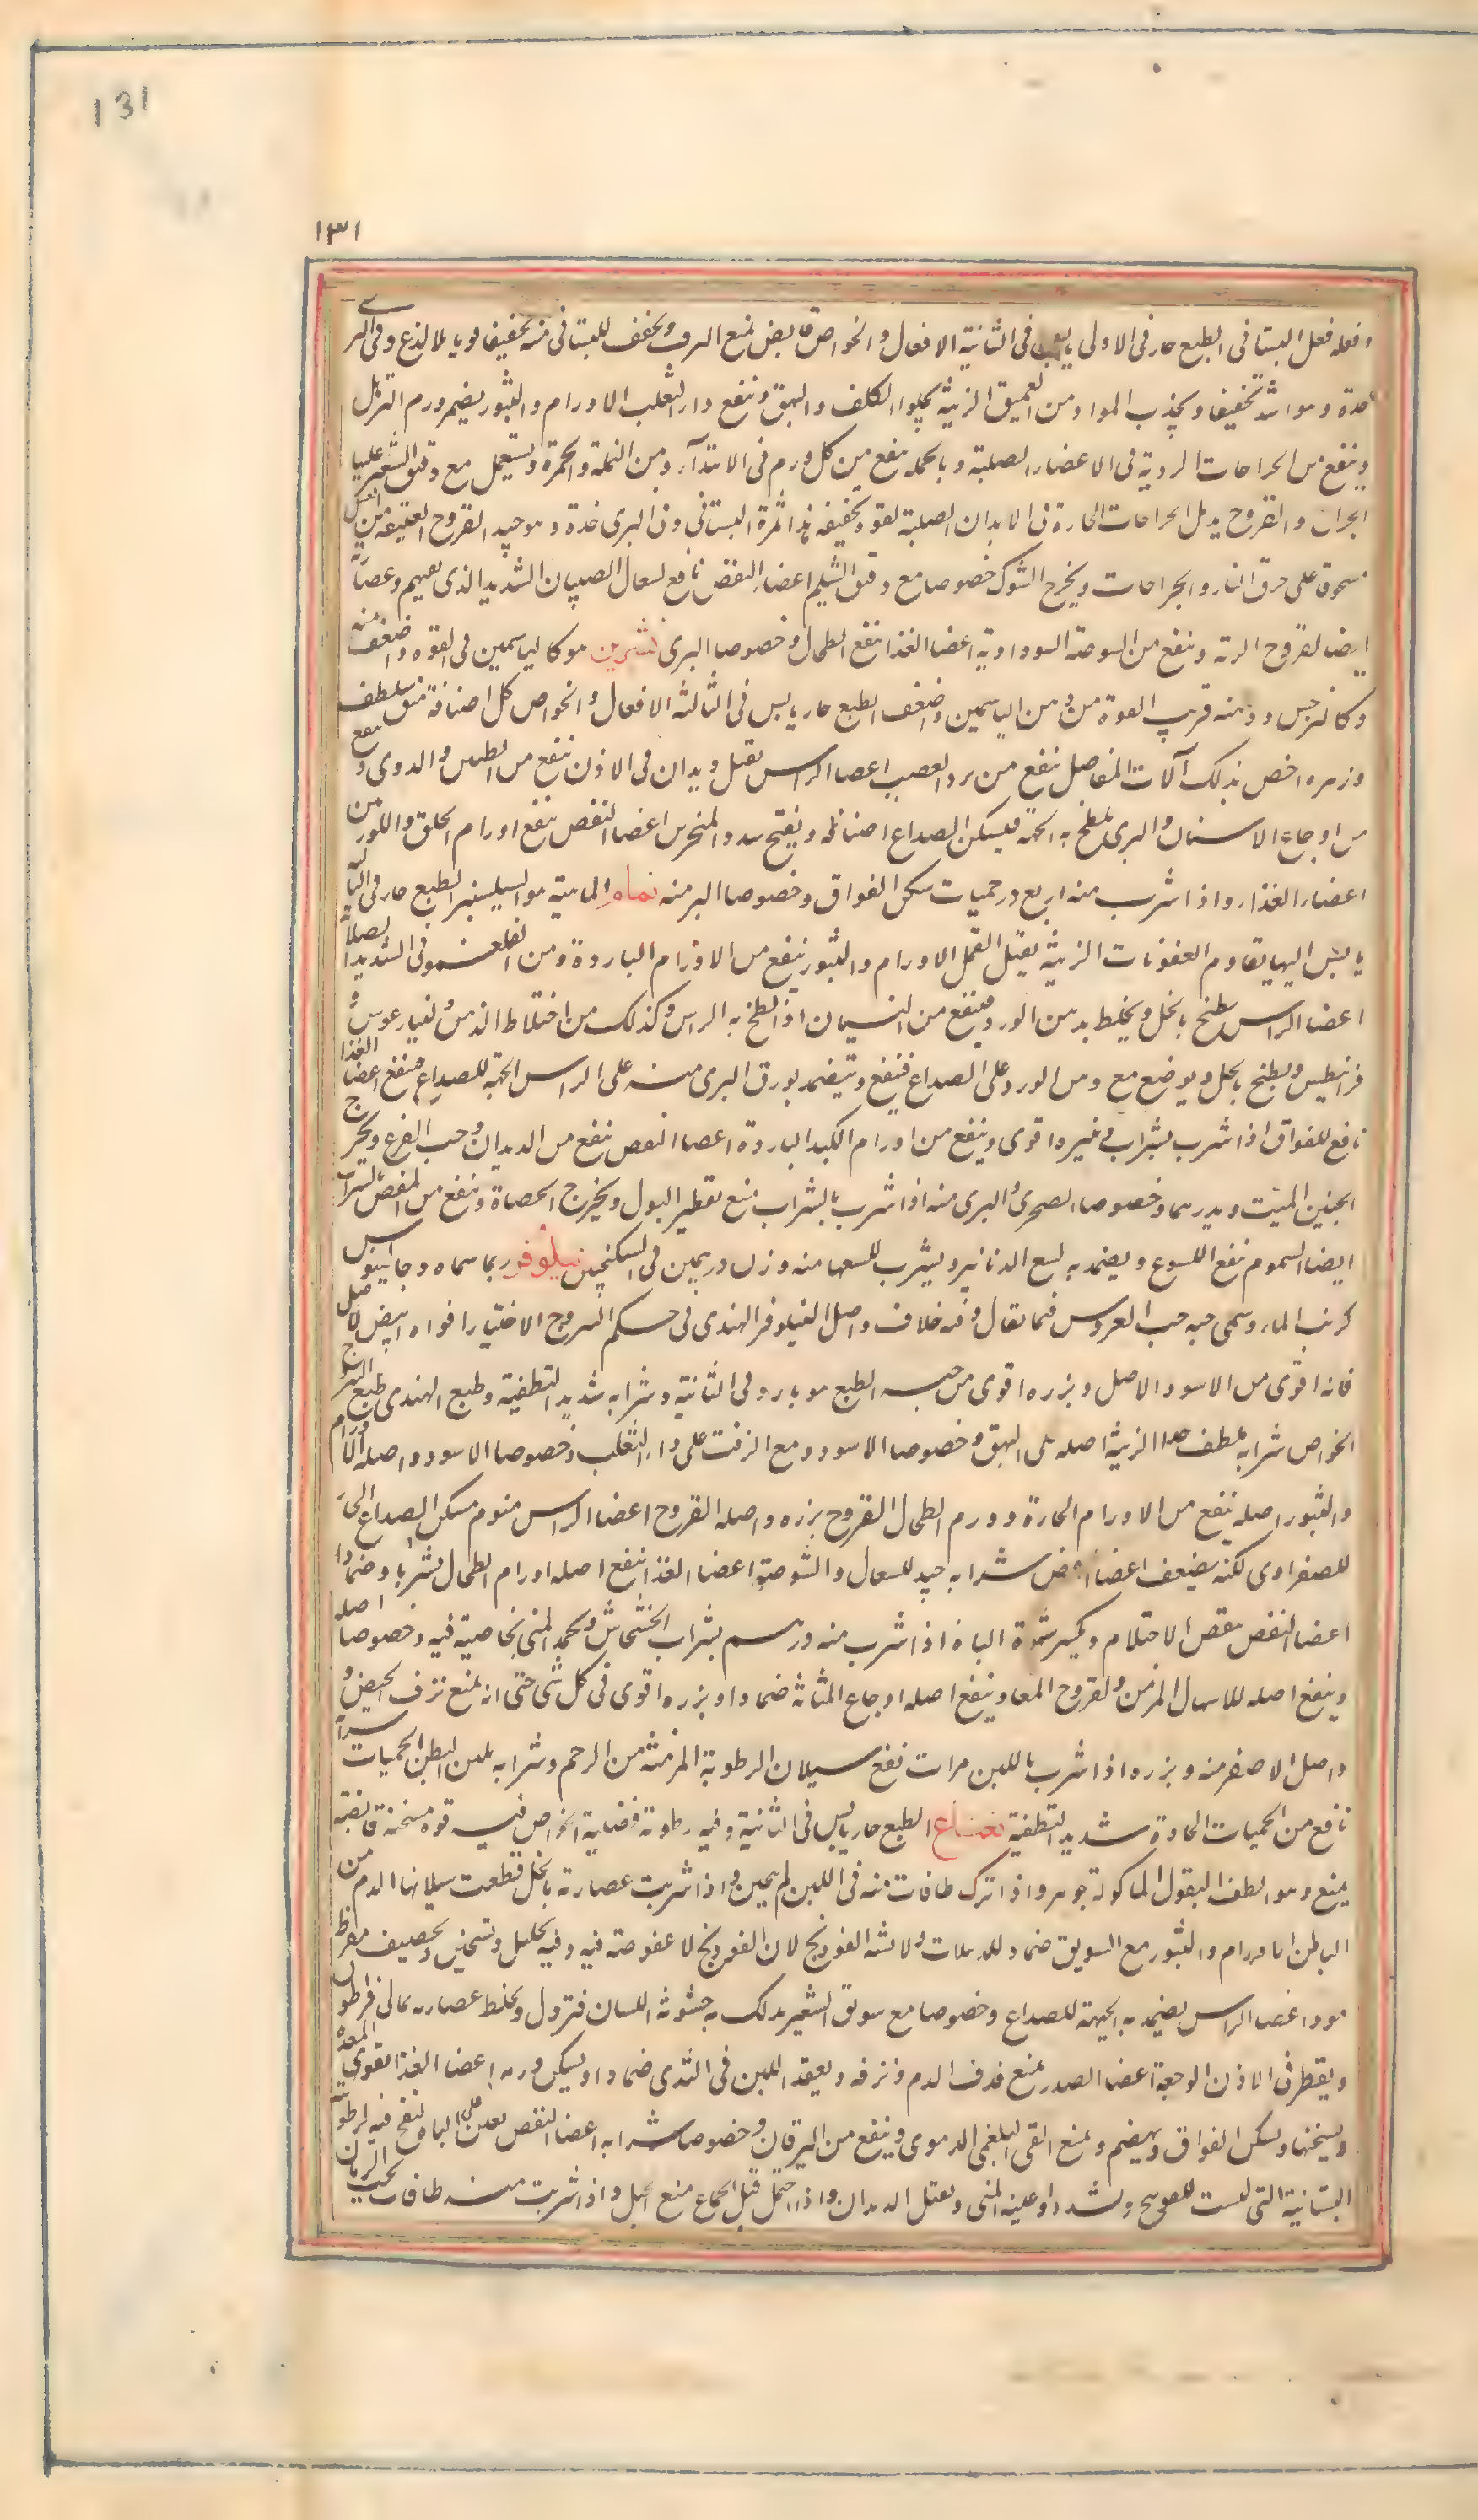 131
١٣١
وفعله فعل البستانى الطبع حار فى الاولى يابس فى الثانية الافعال والخواص قابض يمنع النزف ويجفف للبستانى منه تجفيفا قويا بلا لذع وفى البرى
حدة وهو اشد تجفيفا ويجذب المواد من العميق الزينة يجلو الكلف والبهق وينفع داء الثعلب الاورام والبثور يضمر ورم الترهل
وينفع من الجراحات الردية فى الاعضاء الصلبة وبالجملة ينفع من كل ورم فى الابتداء ومن النملة والحمرة ويستعمل مع دقيق الشعير عليها
الجراح والقروح يدمل الجراحات الحارة فى الابدان الصلبة لقوة تجفيفه هذا ثمرة البستانى وفى البرى حدة وهو جيد القروح العتيقة من العسل
مسحوق على حرق النار والجراحات ويخرج الشوك خصوصا مع دقيق الشيلم اعضاء النفض نافع لسعال الصبيان الشديد الذى يقيهم وعصارته
ايضا لقروح الرئة وينفع من الشوصة السوداوية اعضا الغذا ينفع الطحال وخصوصا البرى نسرين هو كالياسمين فى القوة واضعف منه
وكالنرجس ودهنه قريب القوة من دهن الياسمين واضعف الطبع حار يابس فى الثالثة الافعال والخواص كل اصنافه منق ملطف
وزهره اخص بذلك آلات المفاصل ينفع من برد العصب اعضا الراس يقتل ديدان فى الاذن ينفع من الطنين والدوى وينفع
من اوجاع الاسنان والبرى يلطخ به الجبهة فيسكن الصداع اصنافه ويفتح سدد المنخرين اعضا النفض ينفع اورام الحلق واللوزتين
اعضاء الغذاء واذا شرب منه اربع درخميات سكن الفواق وخصوصا البر منه نمام الماهية هو السيسنبر الطبع حار فى الثالثة
يابس اليها يقاوم العفونات الزينة يقتل القمل الاورام والبثور ينفع من الاورام الباردة ومن الفلغمونى الشديد الصلابة
اعضا الراس يطبخ بالخل ويخلط بدهن الورد فينفع من النسيان اذا لطخ به الراس وكذلك من اختلاط الذهن وليثارغوس و
فرانيطس ويطبخ بالخل ويوضع مع دهن الورد على الصداع فينفع ويتضمد بورق البرى منه على الراس الجبهة للصداع فينفع اعضا الغذا
نافع للفواق اذا شرب بشراب فى غيره اقوى وينفع من اورام الكبد الباردة اعضا النفض ينفع من الديدان وحب القرع ويخرج
الجنين الميت ويدر سما وخصوصا الصخرى والبرى منه اذا شرب بالشراب منع تقطير البول ويخرج الحصاة وينفع من المغص بشراب
ايضا السموم ينفع اللسوع ويضمد به لسع الدنانير ويشرب للسعها منه وزن درهمين فى السكنجبين نيلوفر ربما سماه جالينوس
كرنب الماء وسمى حبه حب العروس فيما يقال وفيه خلاف واصل النيلوفر الهندى فى حكم اليبروج الاختيار افواه ابيض الاصل
فانه اقوى من الاسود الاصل وبزره اقوى من حبه الطبع هو بارد فى الثانية وشرابه شديد التطفية وطبع الهندى طبع اليبروج
الخواص شرابه ملطف جدا الزينة اصله على البهق وخصوصا الاسود ومع الزفت على داء الثعلب وخصوصا الاسود واصله الاورام
والبثور اصله ينفع من الاورام الحارة وورم الطحال القروح بزره واصله القروح اعضا الراس منوم مسكن الصداع الحار
للصفراوى لكنه يضعف اعضا شرابه جيد للسعال والشوصة اعضا الغذا ينفع اصله اورام الطحال شربا وضمادا
اعضا النفض ينقص الاحتلام ويكسر شهوة الباه اذا شرب منه درهم بشراب الخشخاش ويجمد المنى بخاصية فيه وخصوصا اصله
وينفع اصله للاسهال المزمن ولقروح المعا وينفع اصله اوجاع المثانة ضمادا وبزره اقوى فى كل شى حتى انه يمنع نزف الحيض و
واصل الاصفر منه وبزره اذا شرب باللبن مرات نفع سيلان الرطوبة المزمنة من الرحم وشرابه يلين البطن الحميات شرابه
نافع من الحميات الحادة شديد التطفية نعناع الطبع حار يابس فى الثانية وفيه رطوبة فضلية الخواص فيه قوة مسخنة قابضة
يمنع وهو الطف البقول الماكولة جوهرا واذا ترك طاقات منه فى اللبن لم يتجبن واذا شربت عصارته بالخل قطعت سيلانها الدم من
الباطن الاورام والبثور مع السويق ضماد للدبيلات ولا يشبه الفودنج لان الفودنج لا عفوصة فيه وفيه تحليل وتسخين وتجفيف مفرط
اعضا الراس يضمد به الجبهة للصداع وخصوصا مع سويق الشعير يدلك به خشونة اللسان فتزول ويخلط عصارته بمالى قراطون
ويقطر فى الاذن الوجعة اعضا الصدر يمنع قذف الدم ونزفه ويعقد اللبن فى الثدى ضمادا ويسكن ورمه اعضا الغذا يقوى المعدة
ويسخنها ويسكن الفواق ويهضم ويمنع القى البلغمى الدموى وينفع من اليرقان وخصوصا شرابه اعضا النفض يعين على الباه لنفخ فيه لرطوبته
البستانية التى ليست للفودنج ويشد اوعية المنى ويقتل الديدان واذا احتمل قبل الجماع منع الحبل واذا شربت منه طاقات بحب الرمان